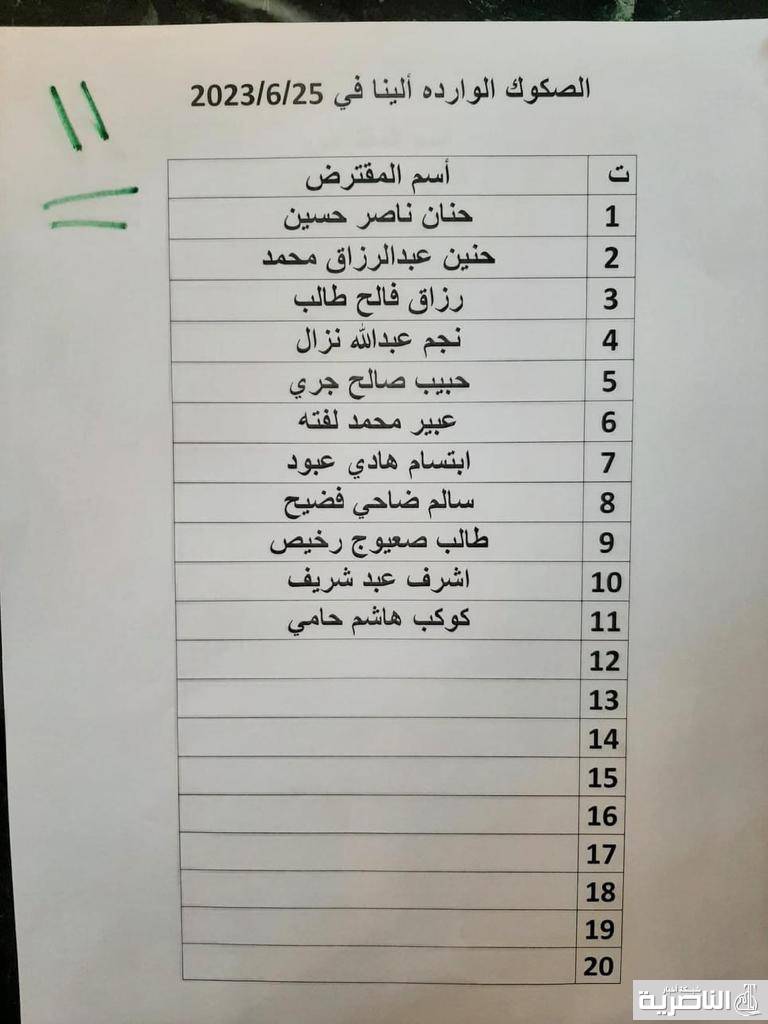 الصكوك الوارده ألينا في 2023/6/25
١١
ت أسم المقترض
1 حنان ناصر حسين
2 حنين عبدالرزاق محمد
3 رزاق فالح طالب
4 نجم عبدالله نزال
5 حبيب صالح جري
6 عبير محمد لفته
7 ابتسام هادي عبود
8 سالم ضاحي فضيح
9 طالب صعيوج رخيص
10 اشرف عبد شريف
11 كوكب هاشم حامي
12
13
14
15
16
17
18
19
20
شبكة أخبار
الناصرية